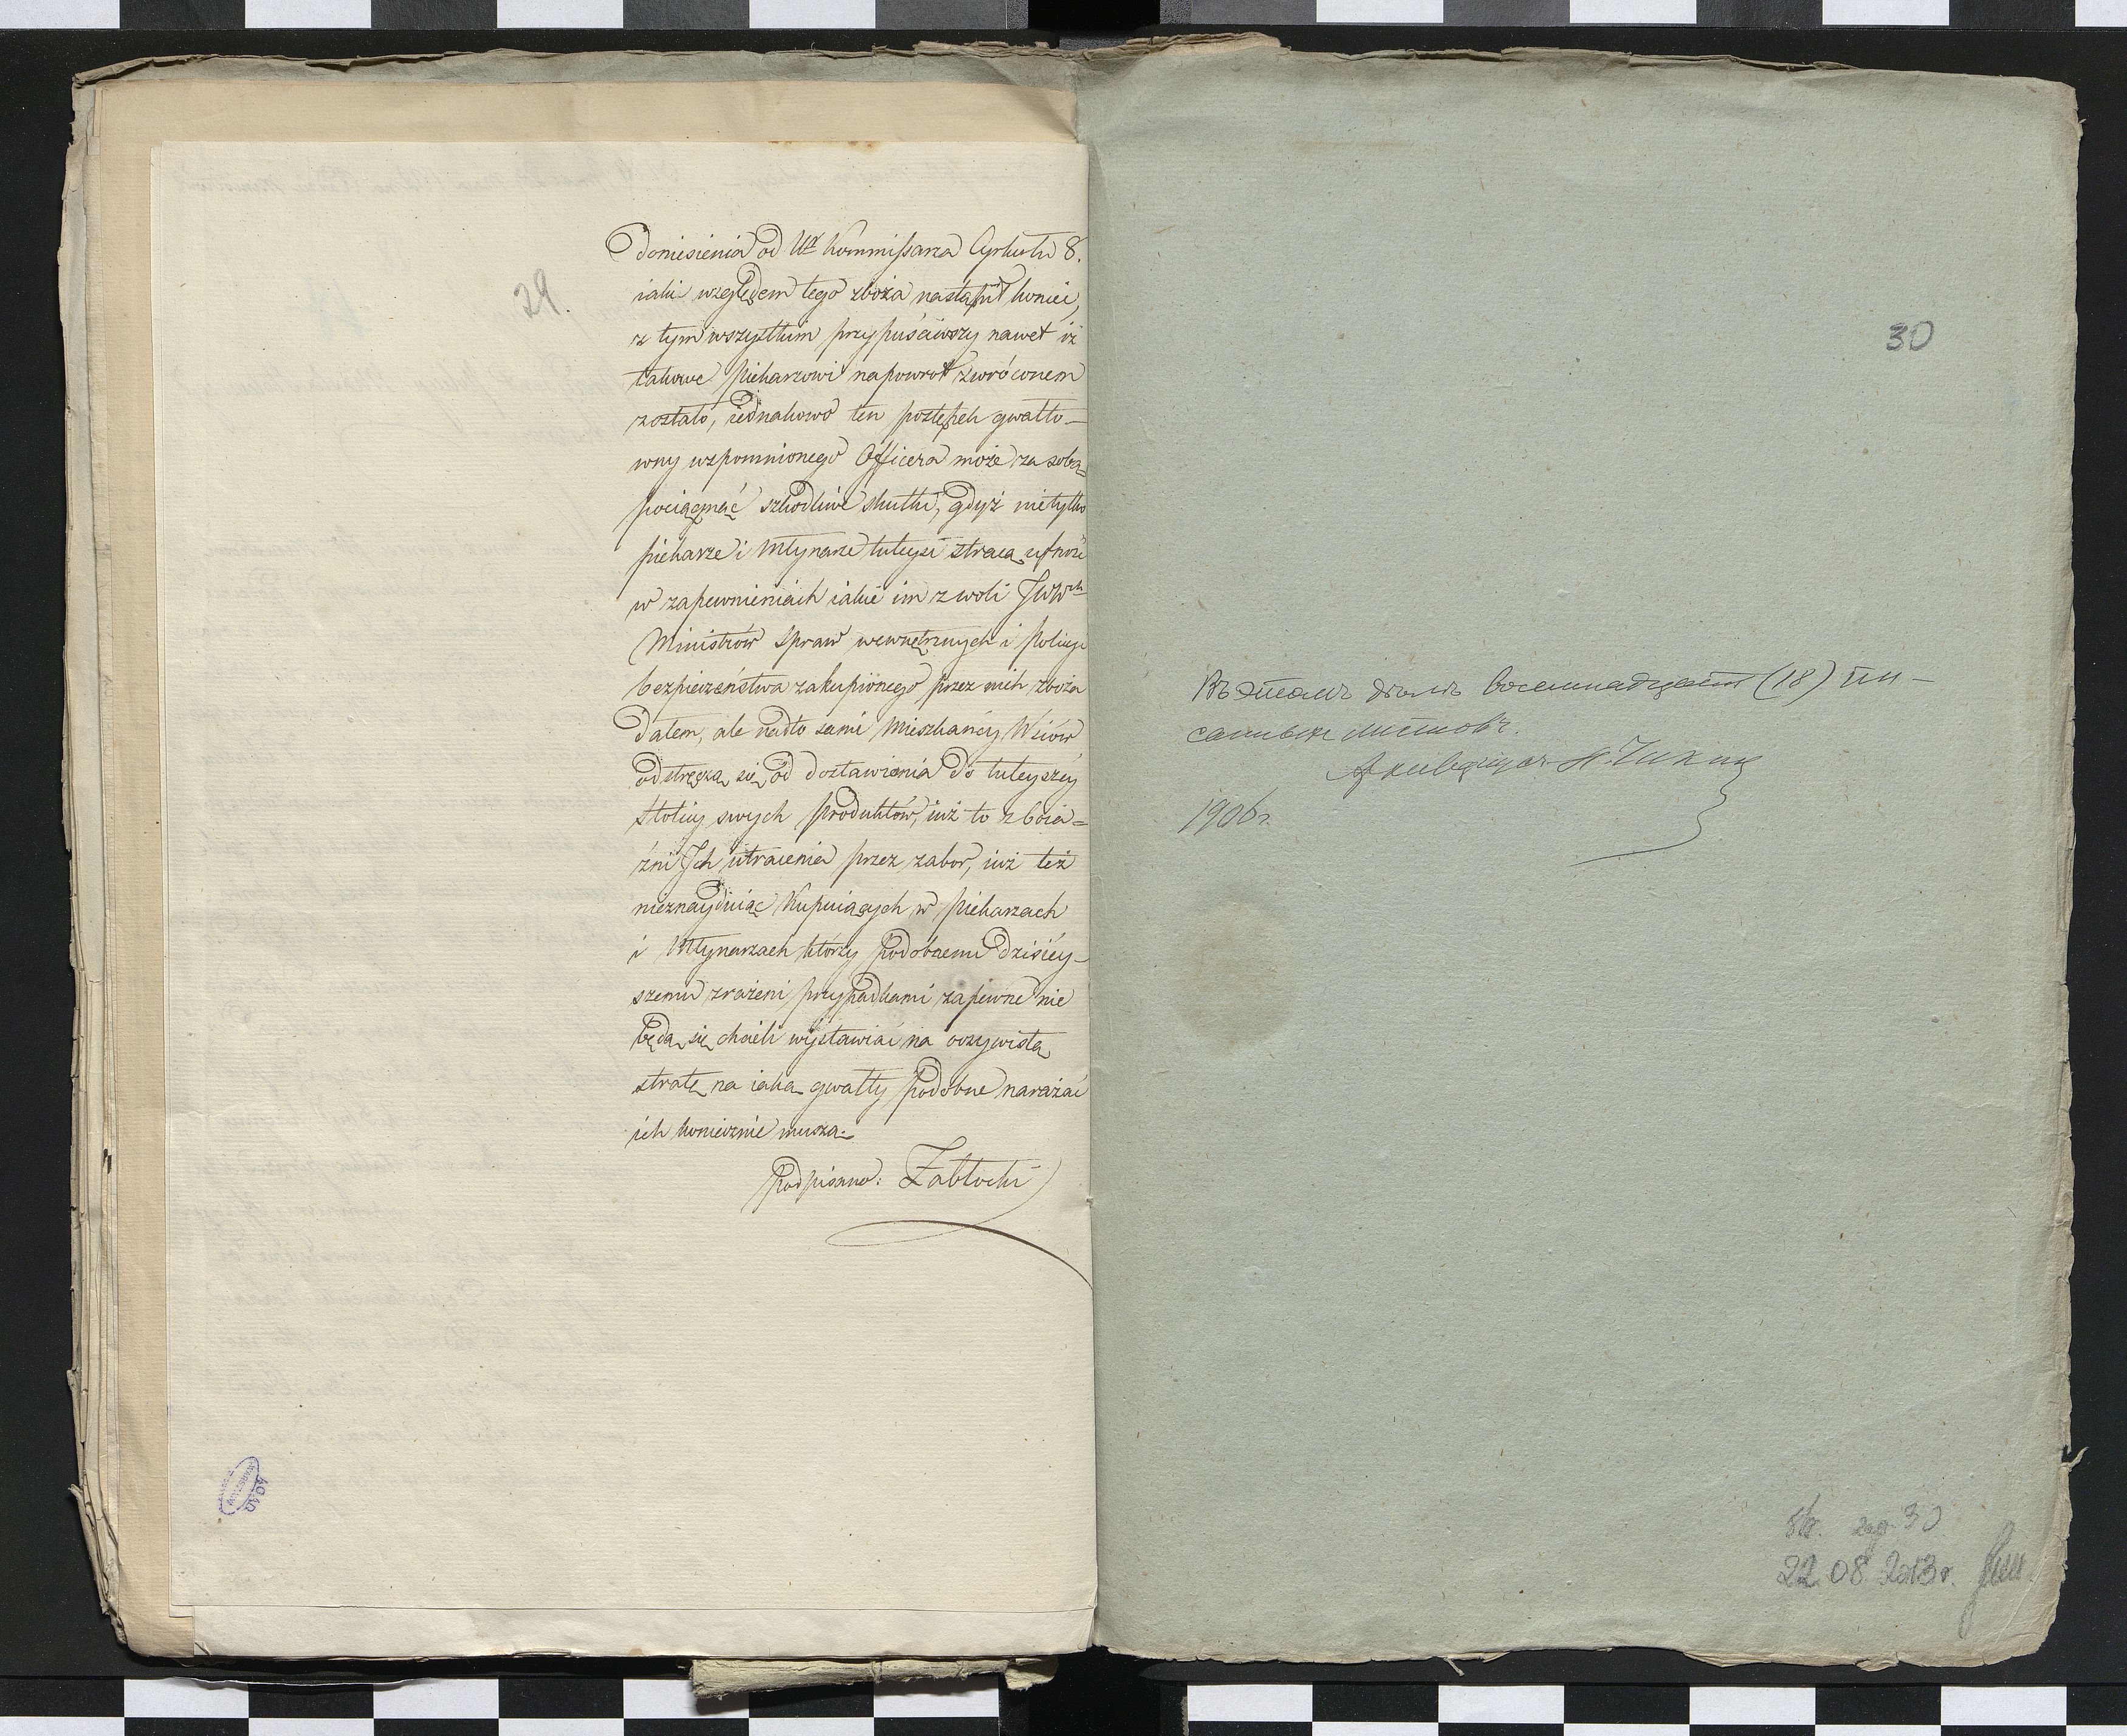 29.
doniesienia od Ur Kommissarza Cyrkułu 8.
iaki względem tego zboża nastąpił koniec,
z tym wszystkim przypuściwszy nawet iż
takowe piekarzowi napowrot zwróconem
zostało, iednakowo ten postępek gwałto-
wny wzpomnionego Officera może za sobą
pociągnąć szkodliwe skutki, gdyż nietylko
piekarze i Młynarze tuteysi stracą ufność
w zapewnieniach iakie im z woli JWWch
Ministrów Spraw wewnętrznych i Policyi
bezpieczeństwa zakupionego przez nich zboża
dałem, ale nadto sami Mieszkańcy Wsiów
odstręczą się od dostawienia do tuteyszéy
Stolicy swych produktów, iuż to z boia-
źni Ich utracenia przez zabor, iuż też
nieznayduiąc Kupuiących w piekarzach
i Młynarzach którzy podobnemi dzisiéy-
szemu zrażeni przypadkami zapewne nie
będą się chcieli wystawiać na oczywistą
stratę na iaką gwałty podobne narażać
ich koniecznie muszą.
podpisano: Zabłocki
AGAD
30
Въ этомъ дѣлѣ восемнадцать (18) пи-
санныхъ листовъ.
Архиваріусъ
1906 г.
Str. zap. 30
22.08.2013 r.